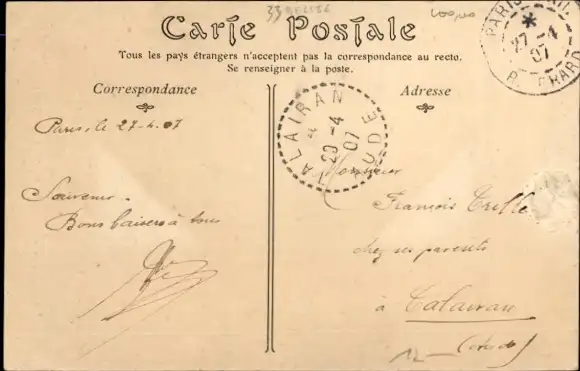 Carte Postale
Tous les pays étrangers n'acceptent pas la correspondance au recto.
Se renseigner à la poste.
Correspondance
Adresse
PARIS
27-4
07
TALAIRAN
29-4
07
AUDE
Paris, le 27-4-07
Souvenir.
Bons baisers à tous
Monsieur
François Trille
chez ses parents
à Talairan
(Aude)